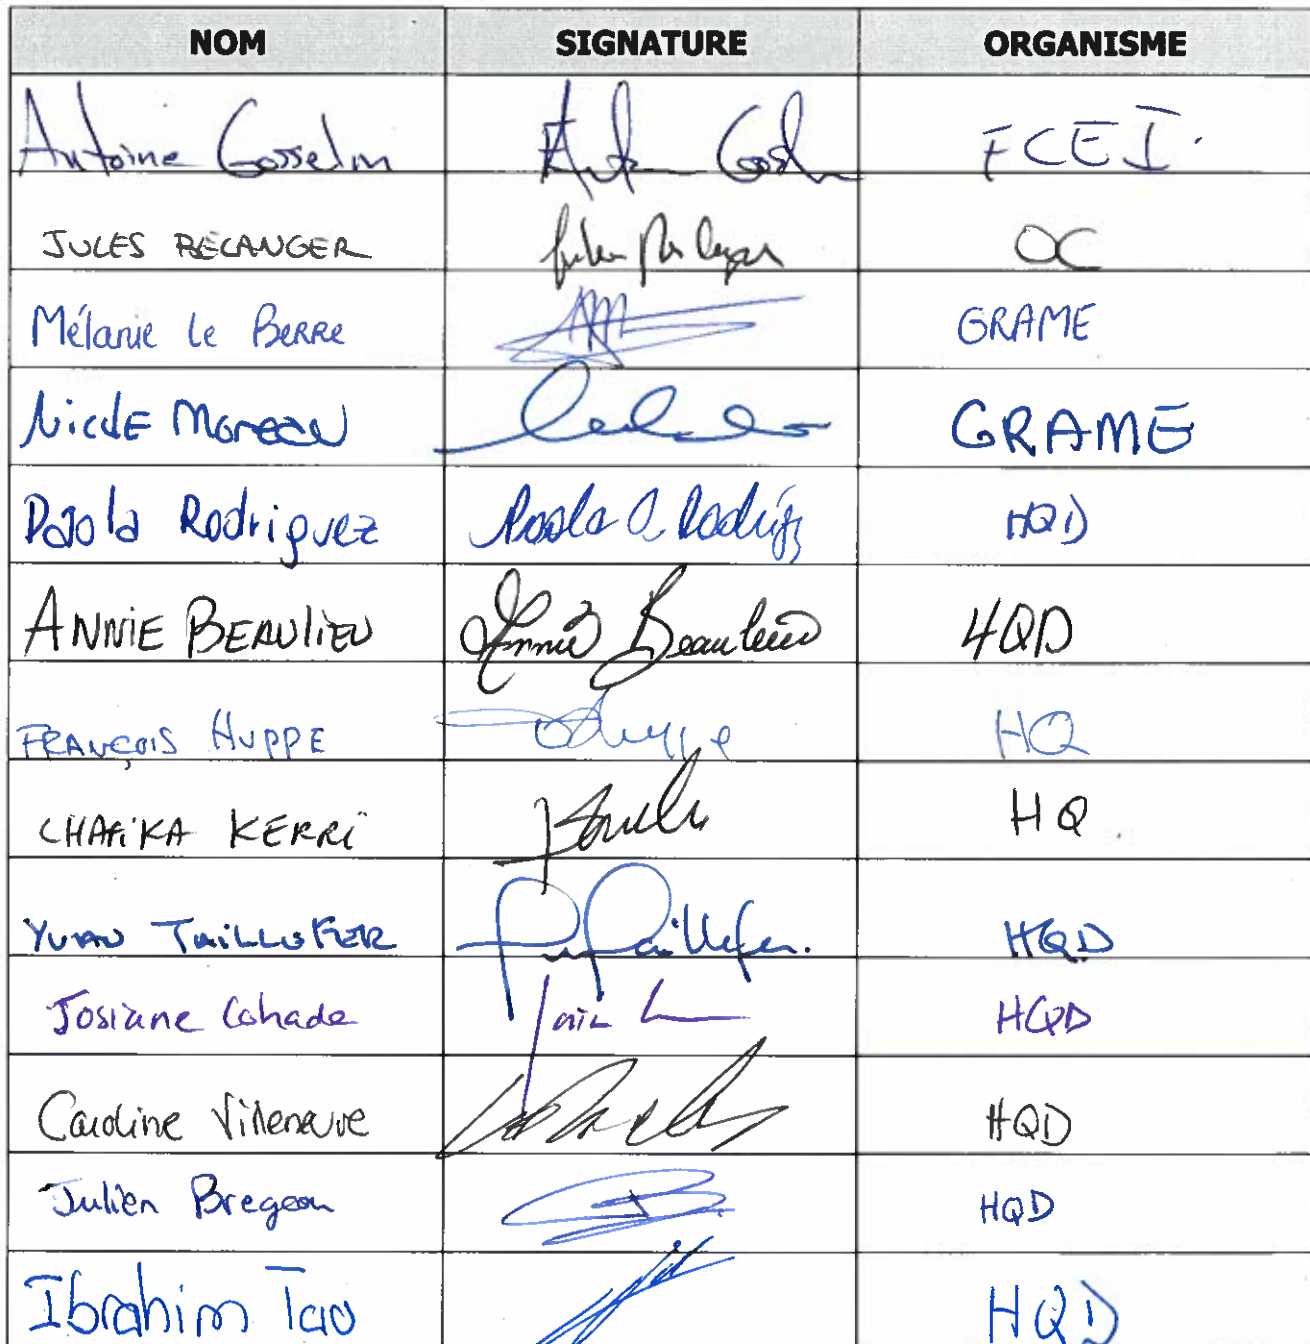 NOM SIGNATURE ORGANISME
Antoine Gosselin FCEI
JULES BÉLANGER OC
Mélanie Le Berre GRAME
Nicole Moreau GRAME
Paola Rodriguez HQD
ANNIE BEAULIEU Annie Beaulieu HQD
FRANÇOIS HUPPE HQ
CHAFIKA KERRI HQ
TAILLEFER HQD
Josiane Cohade HQD
Caroline Villeneuve HQD
Julien Bregeon HQD
Ibrahim HQD